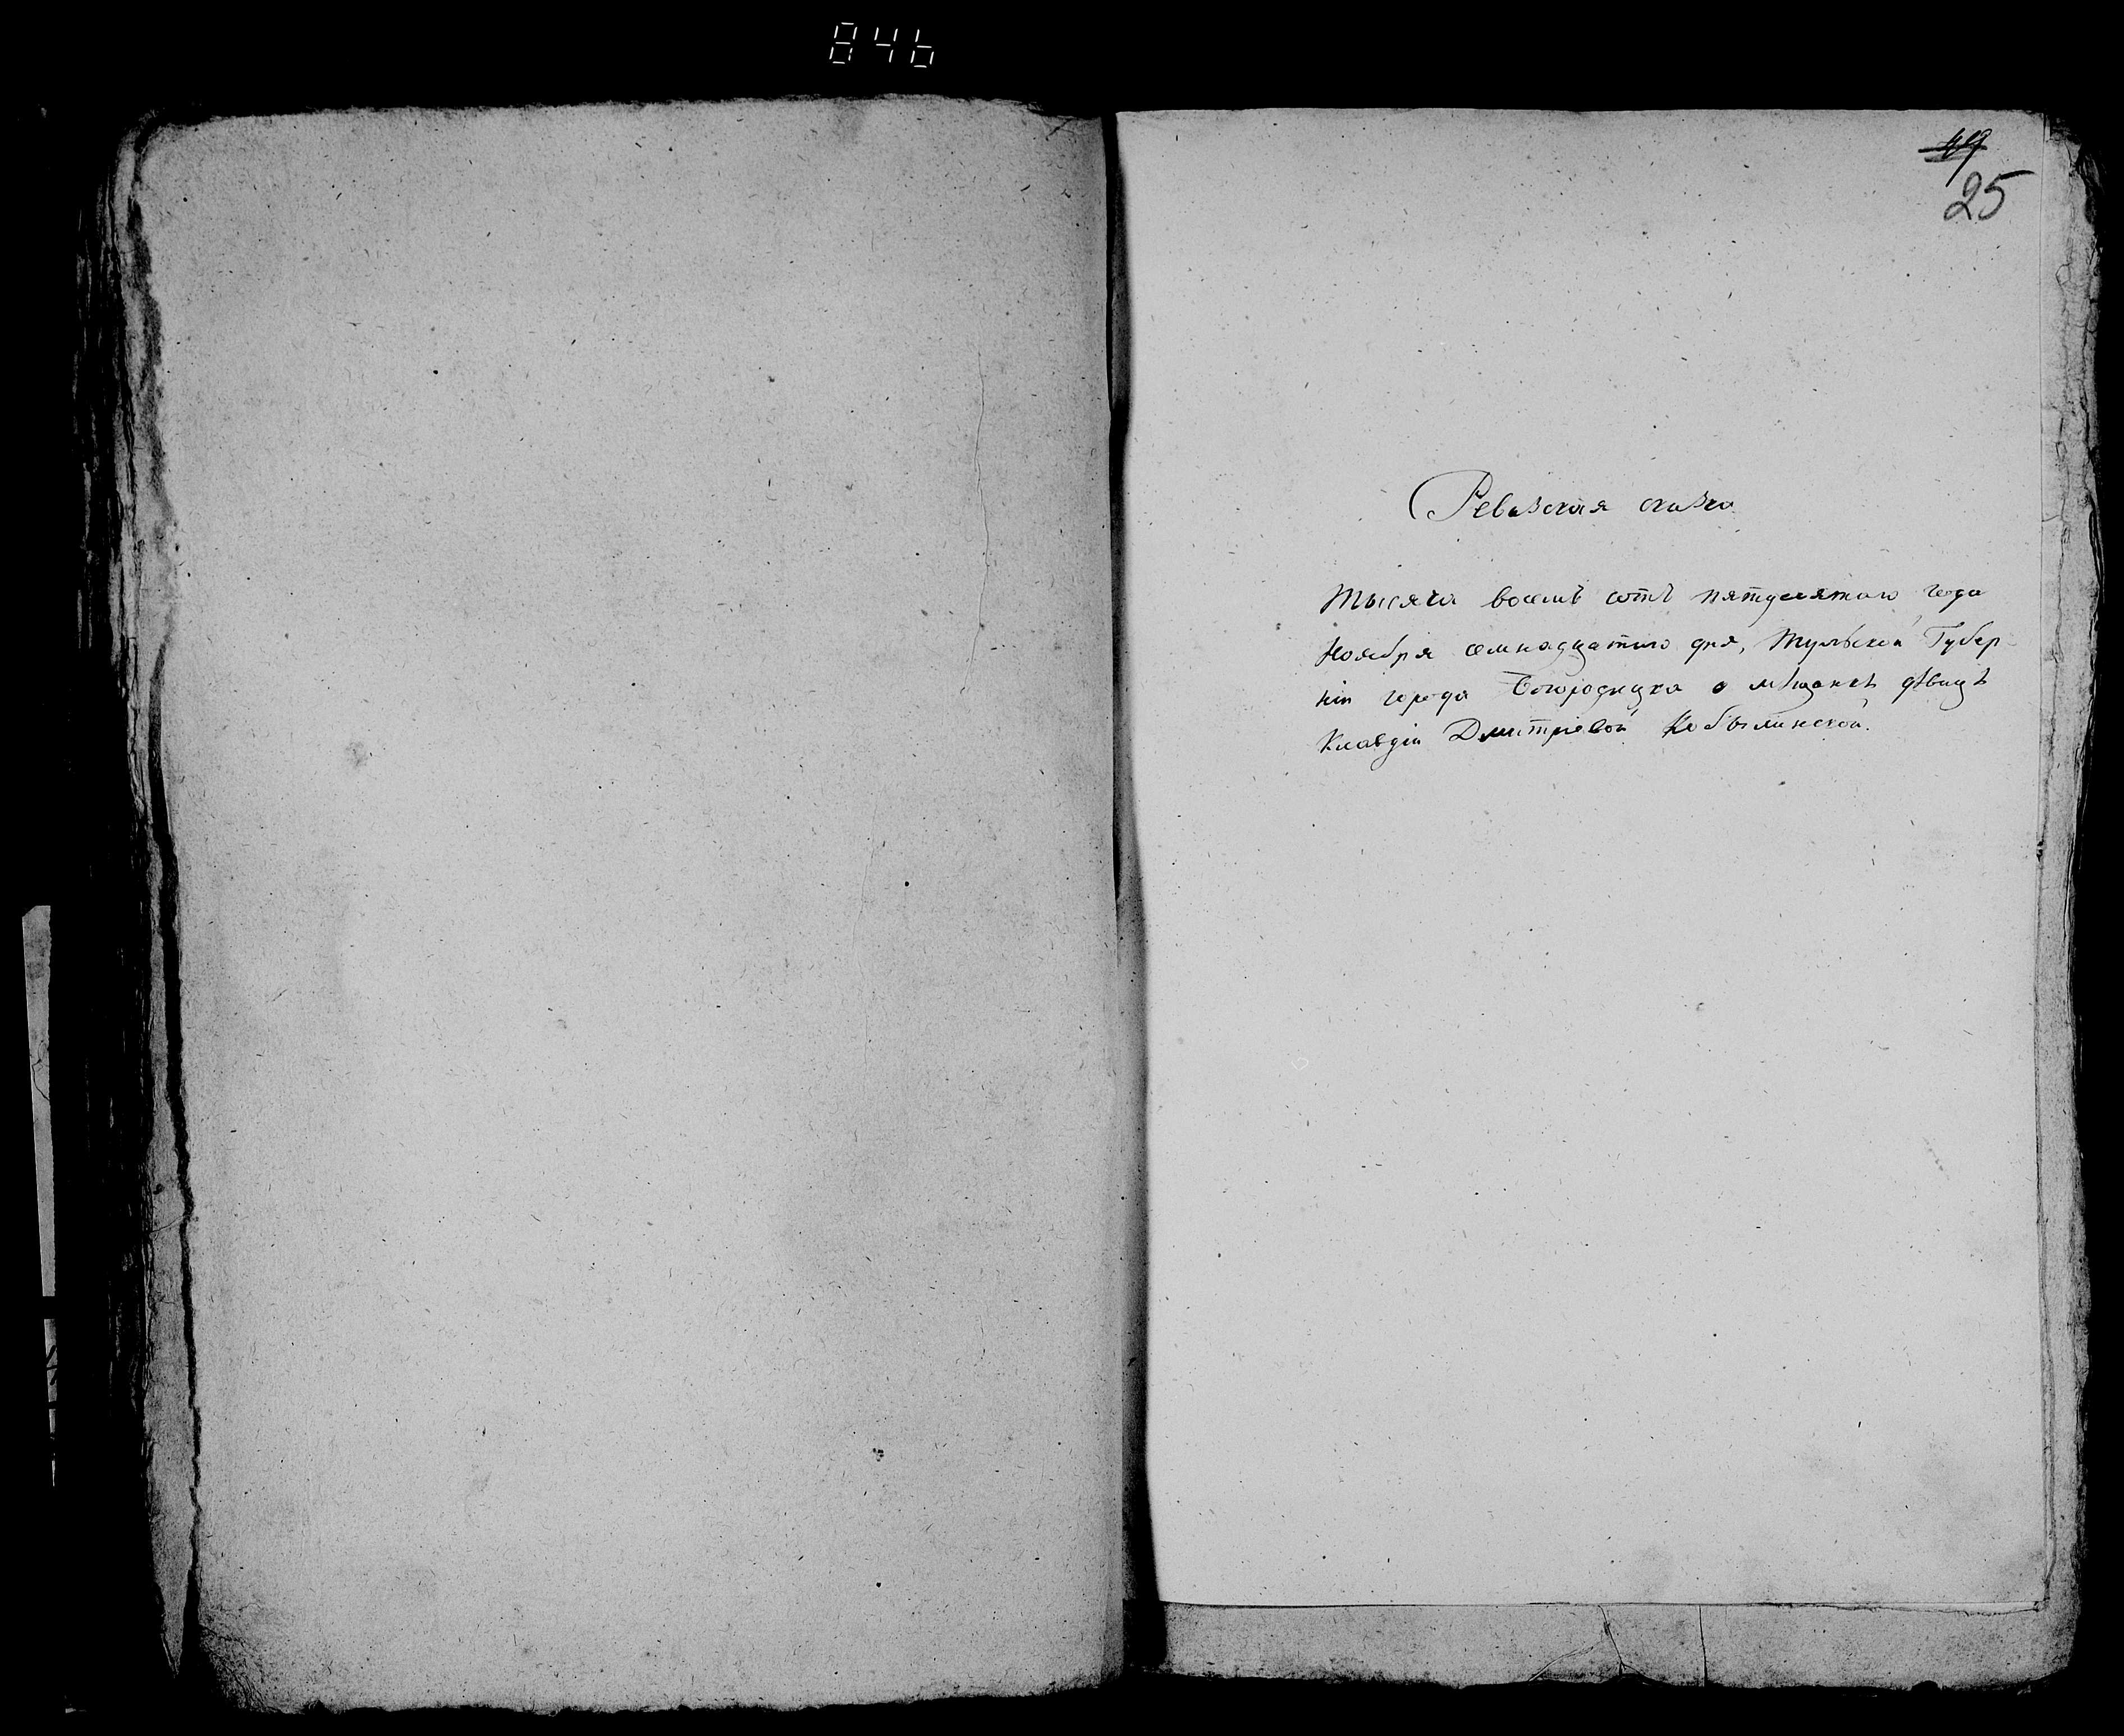 846
49
25
Ревизская сказка
Тысяча восемь сотъ пятдесятаго года
Ноября семнадцатаго дня, Тульской Губер-
ніи города Богородицка о мѣщанкѣ дѣвицѣ
Клавдіи Дмитріевой Кобылинской.